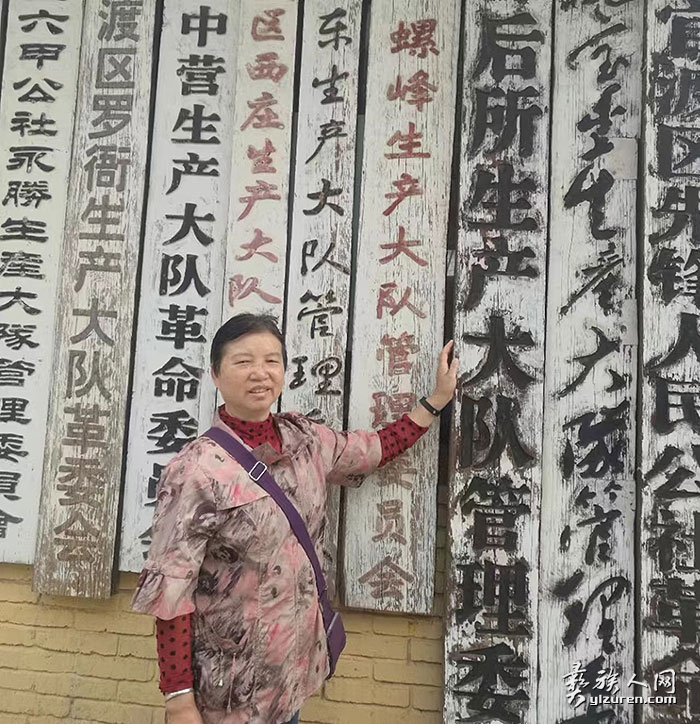 六甲公社永勝生產大隊管理委員會
渡区罗衙生产大队革委会
中营生产大队革命委员
区西庄生产大队
东生产大队管理
螺峰生产大队管理委员会
后所生产大队管理委
生產大隊管理
渡区先锋人民公社革
彝族人网
yizuren.com